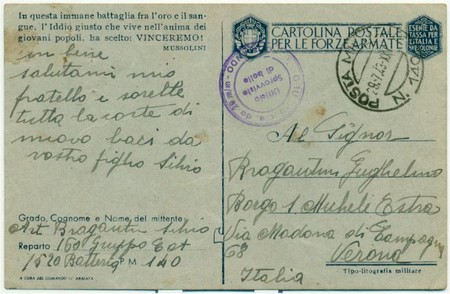 In questa immane battaglia fra l'oro e il san-
gue. l'Iddio giusto che vive nell'anima dei
giovani popoli. ha scelto: VINCEREMO!
MUSSOLINI
in bene
salutami mio
fratello e sorelle
tutta la corte di
nuovo baci da
vostro figlio Silvio
Grado, Cognome e Nome, del mittente.
Art Bragantin Silvio
Reparto 150 Gruppo Cat
1520 Batteria P M 140
A CURA DEL COMANDO
ARMATA
CARTOLINA POSTALE
PER LE FORZE ARMATE
ESENTE DA
TASSA PER
L'ITALIA E
COLONIE
POSTA M
Ufficio
Sprovvisto
di bollo
Al Signor
Bragantini Guglielmo
Borgo S. Michele Extra
Via Madona di Campagna
68
Verona
Italia
Tipo-litografia militare